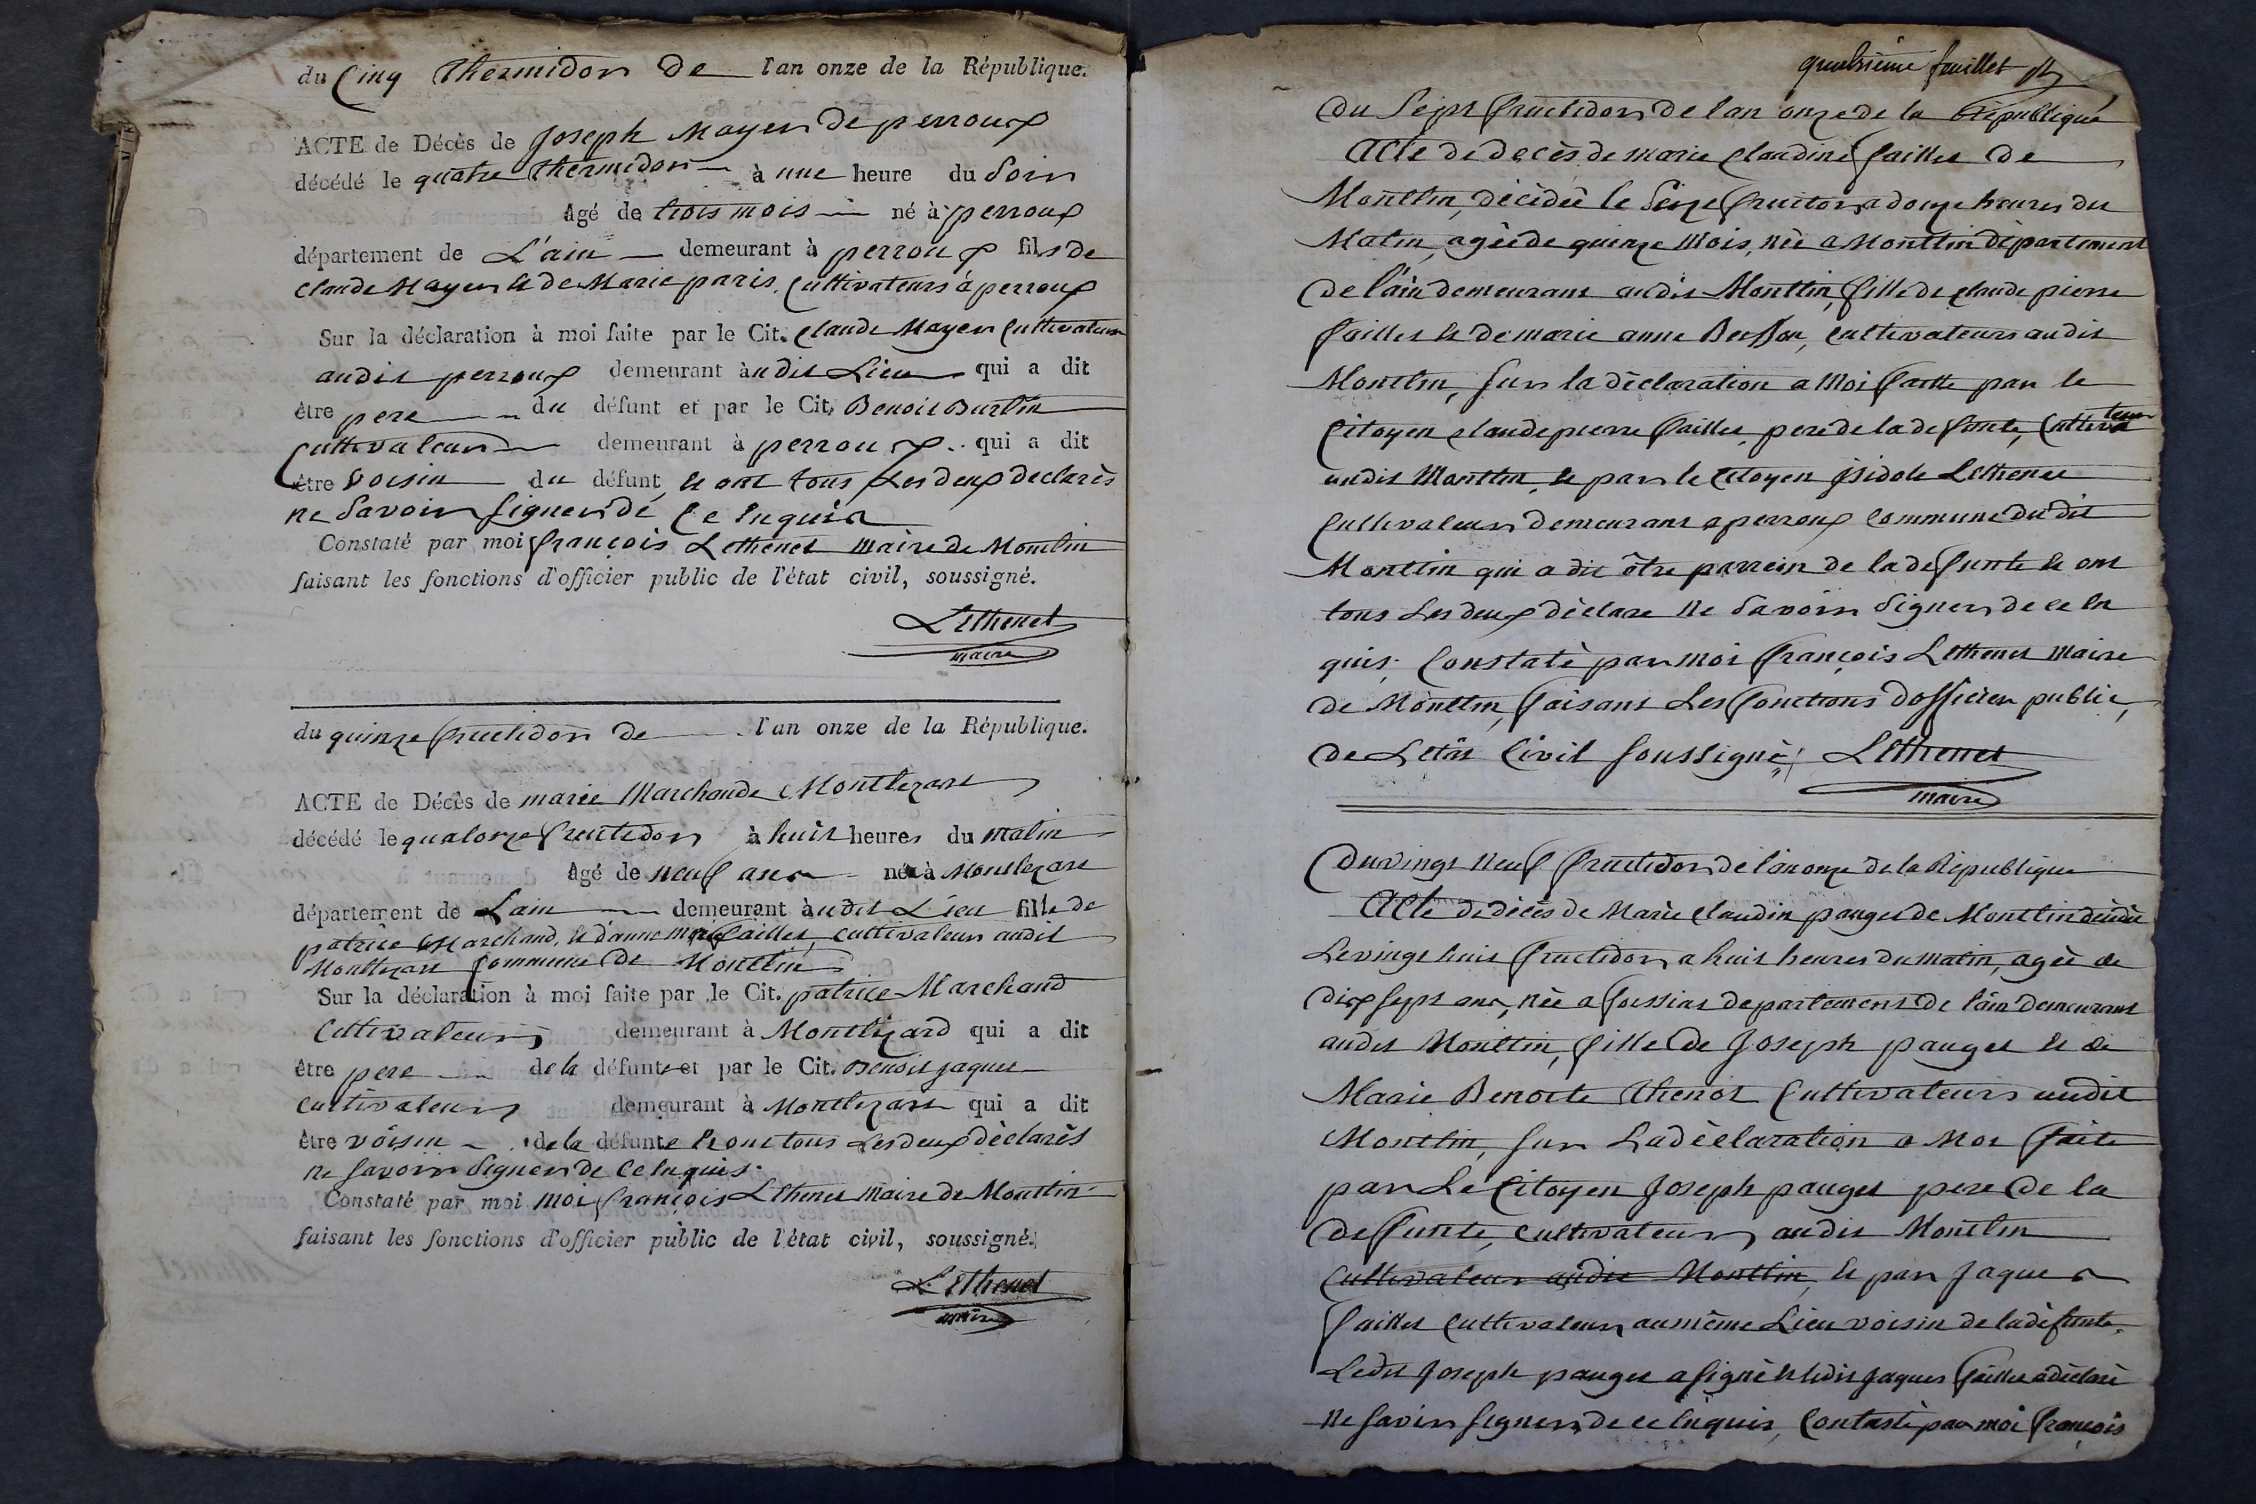 du Cinq thermidor de l'an onze de la République.
ACTE de Décès de Joseph Mayer de perroux
décédé le quatre thermidor à une heure du Soir
âgé de trois mois né à perroux
département de L'ain demeurant à perroux fils de
claude Mayer & de Marie paris, Cultivateurs á perroux
Sur la déclaration à moi faite par le Cit. claude Mayer Cultivateur
audit perroux demeurant àudit Lieu qui a dit
être pere du défunt et par le Cit. Benoit Burtin
Cultivateur demeurant à perroux qui a dit
être voisin du défunt, & ont tous Les deux declarès
ne Savoir Signer de ce Enquis
Constaté par moi françois Lethenet maire de Montlin
faisant les fonctions d'officier public de l'état civil, soussigné.
Lethenet
maire
du quinze fructidor de l'an onze de la République.
ACTE de Décès de marie Marchande Montlezard
décédé le quatorze fructidor à huit heures du matin
âgé de neuf ans né à Montlezard
département de Lain demeurant àudit Lieu fille de
patrice Marchand, & d'anne mrie failles, cultivateurs audit
Montlezard commune de Montlin
Sur la déclaration à moi faite par le Cit. patrice Marchand
Cultivateur demeurant à Montlezard qui a dit
être pere de la défunte et par le Cit. Benoit jaques
cultivateur demeurant à Montlezard qui a dit
être vôisin de la défunte & ont tous Les deux dèclarès
ne savoir Signer de ce Enquis.
Constaté par moi moi françois Lethenet maire de Montlin
faisant les fonctions d'officier public de l'état civil, soussigné.
Lethenet
maire
quatrième feuillet
du Sept fructidor de l'an onze de la Rèpublique
Acte de decès de marie claudine failles de
Montlin, dècèdèe le Seize fructor a douze heures du
Matin, agèe de quinze mois, nèe a Montlin dèpartement
de l'ain demeurant audit Montlin, fille de claude pierre
failles & de marie anne Besson, cultivateurs audit
Montlin, sur la dèclaration a moi faitte par le
Citoyen claude pierre failles, pere de la defunte, Cultivateur
audit Montlin, & par le Citoyen jsidole Lethenet
Cultivateur demeurant a perroux commune du dit
Montlin qui a dit être parrein de la defunte & ont
tous Les deux dèclare ne Savoir Signer de ce En
quis; Constatè par moi françois Lethenet maire
de Montlin, faisant Les fonctions dofficier public,
de Letât Civil soussignè; Lethenet
maire
Du vingt neuf fructidor de l'an onze de la Rèpublique
Acte de dècès de Marie claudin pauget de Montlin dècèdèe
Le vingt huit fructidor a huit heures du matin, agèe de
dix sept ans, nèe a foissiat departement de l'ain demeurant
audit Montlin, fille de Joseph pauget & de
Marie Benoite thenot Cultivateurs audit
Montlin, sur La dèclaration a Moi faite
par Le Citoyen Joseph pauget pere de la
deffunte, cultivateur audit Montlin
cultivateur audit Montlin, & par Jaques
failles cultivateur au même Lieu voisin de la dèfunte,
Ledit Joseph pauget a signè & ledit jaques failles a dèclarè
ne savoir signer de ce Enquis, Contastè par moi françois